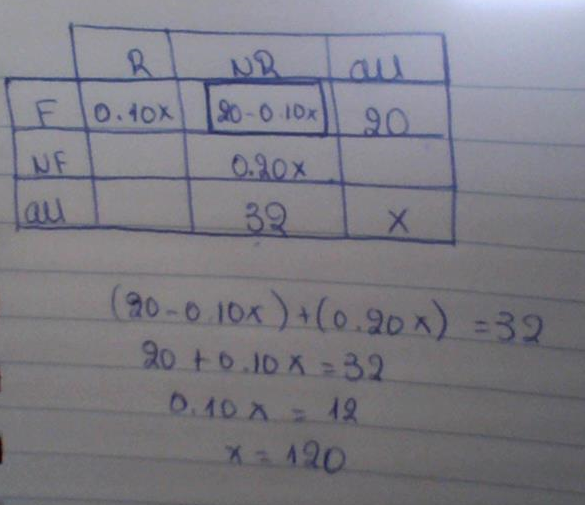 R NR all
F 0.10x 20-0.10x 20
NF 0.20x
all 32 x
(20-0.10x)+(0.20x) = 32
20+0.10x=32
0.10x = 12
x=120